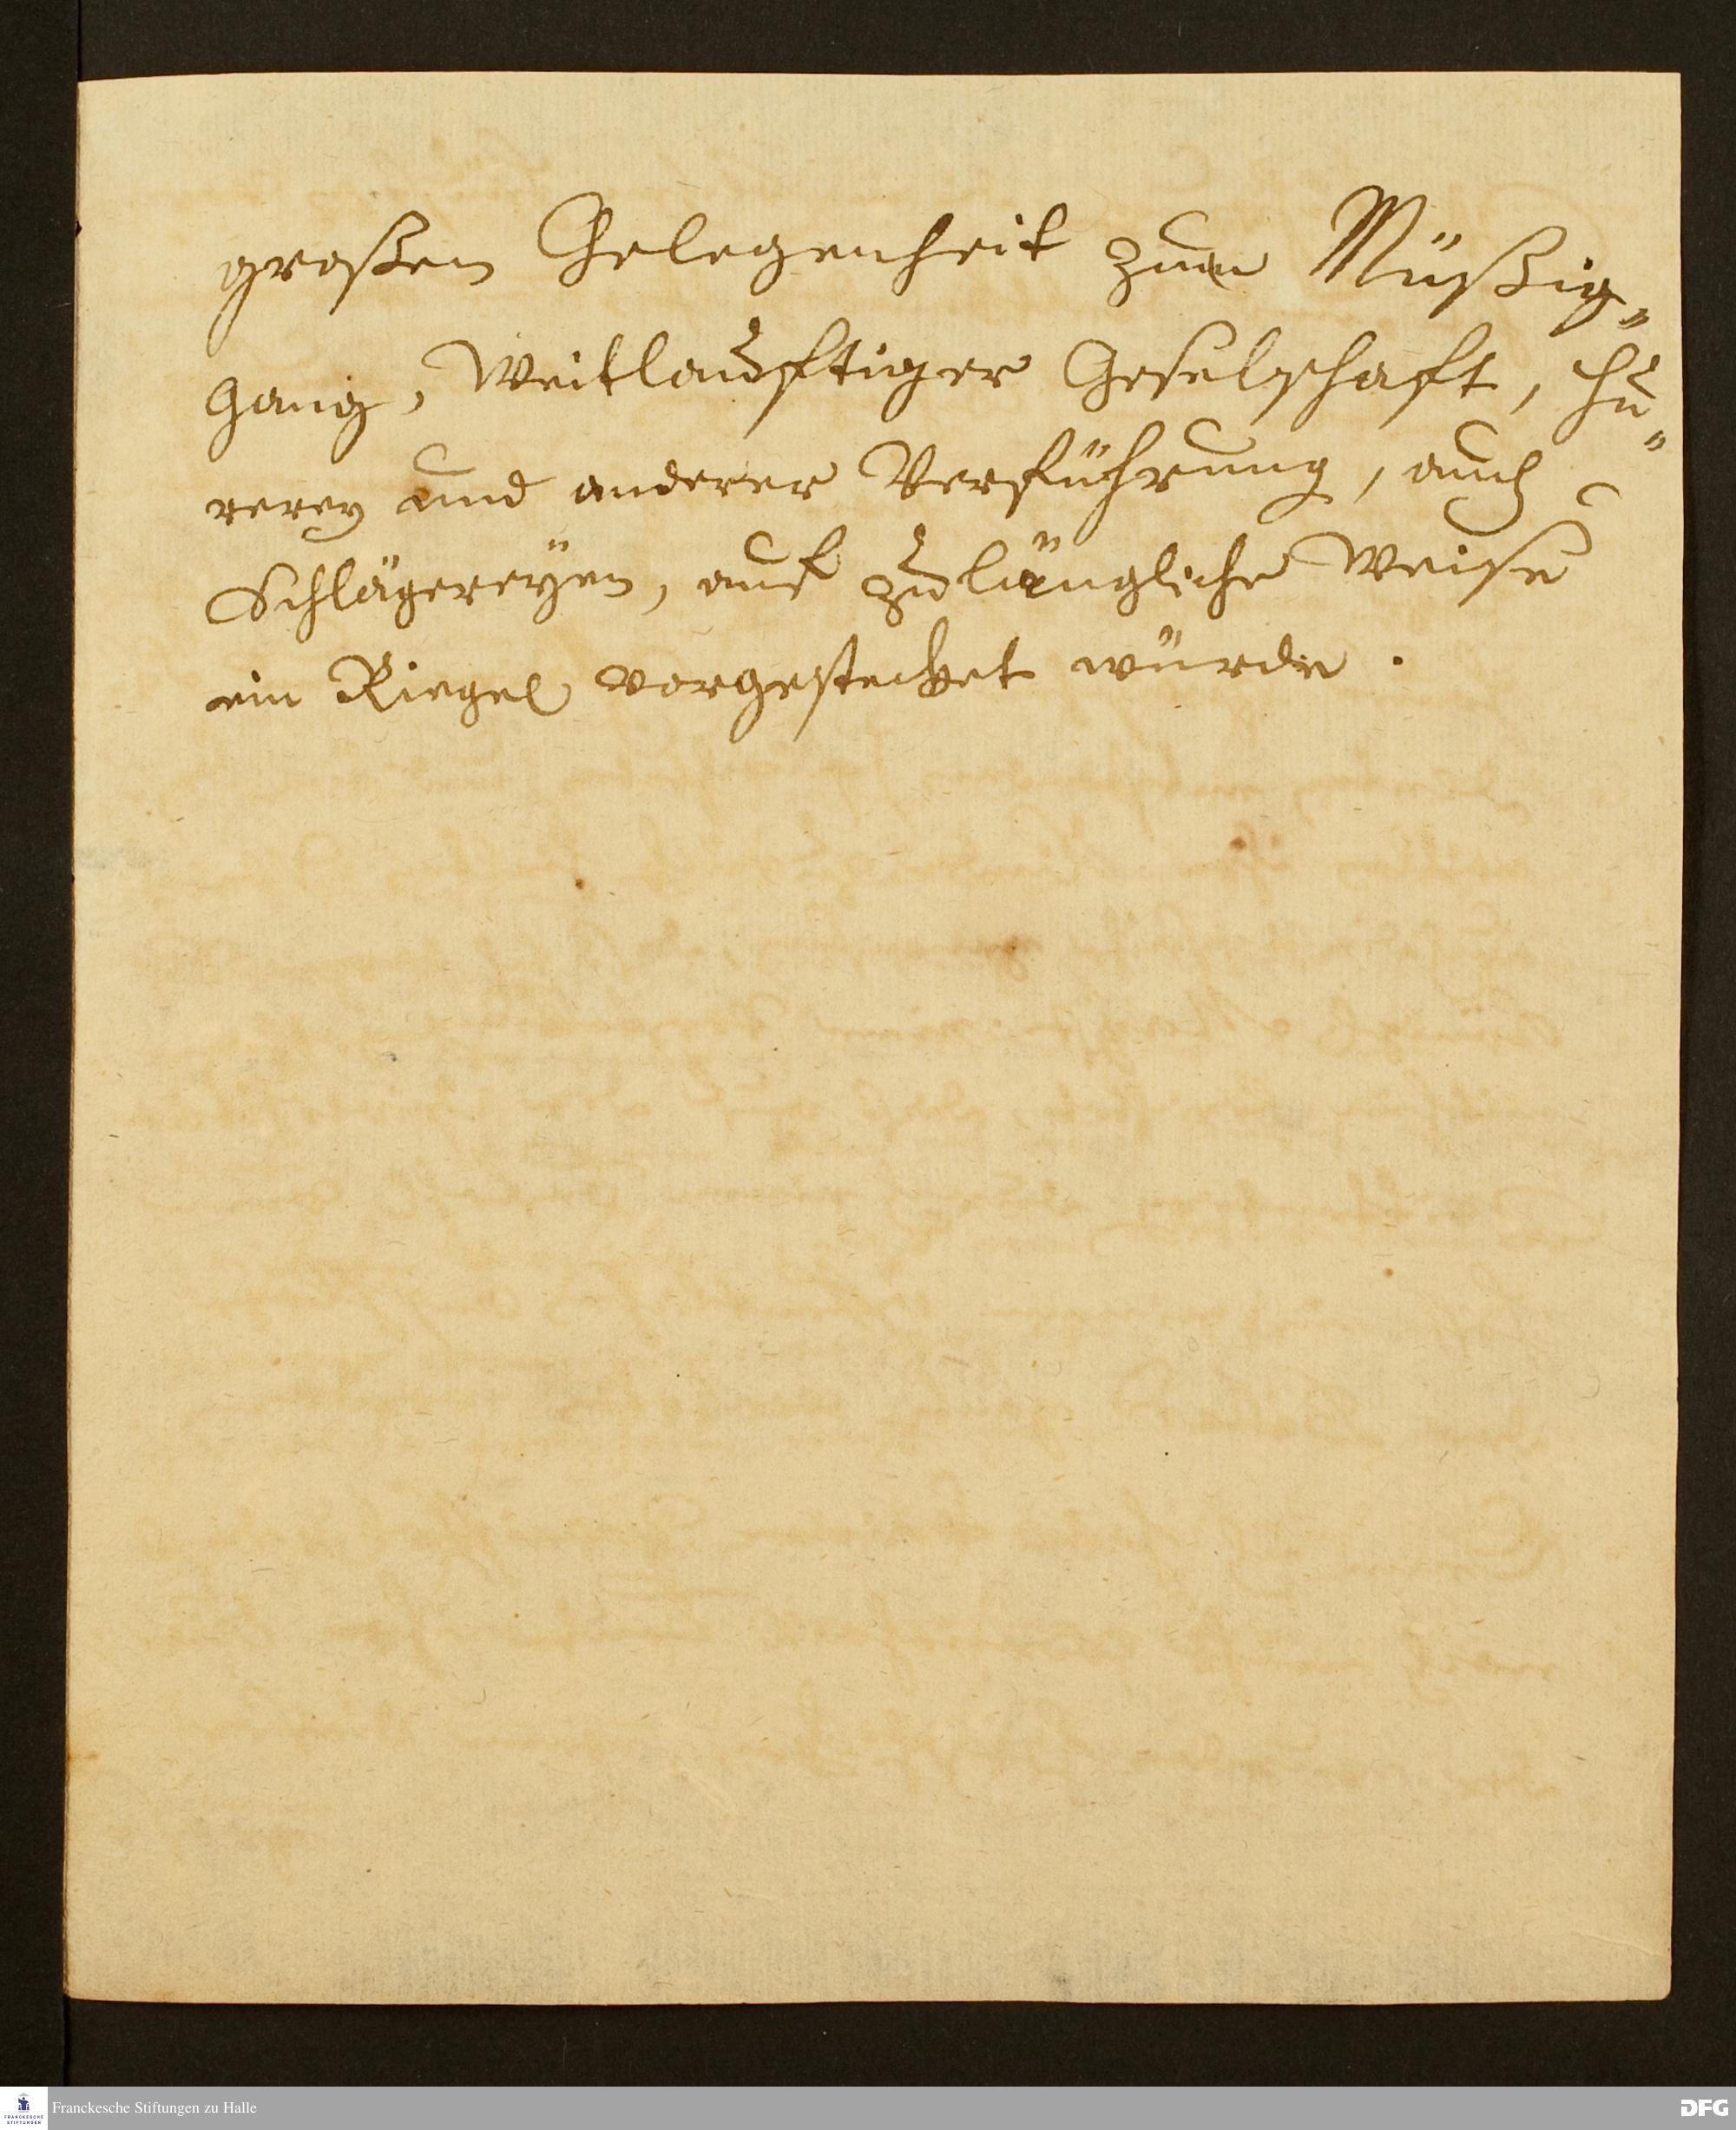 großen Gelegenheit zum Müßig-
gang, Weitlaufftiger Geselschafft, Hu-
rerey und anderer Verführung, auch
Schlägereyen, auf zulängliche Weise
ein Riegel vorgestecket würde.
FRANCKESCHE
STIFTUNGEN
Franckesche Stiftungen zu Halle
DFG